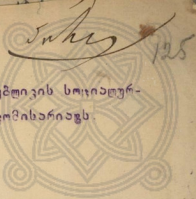 125
უბლიკის სოციალურ-
ომისარიატს.